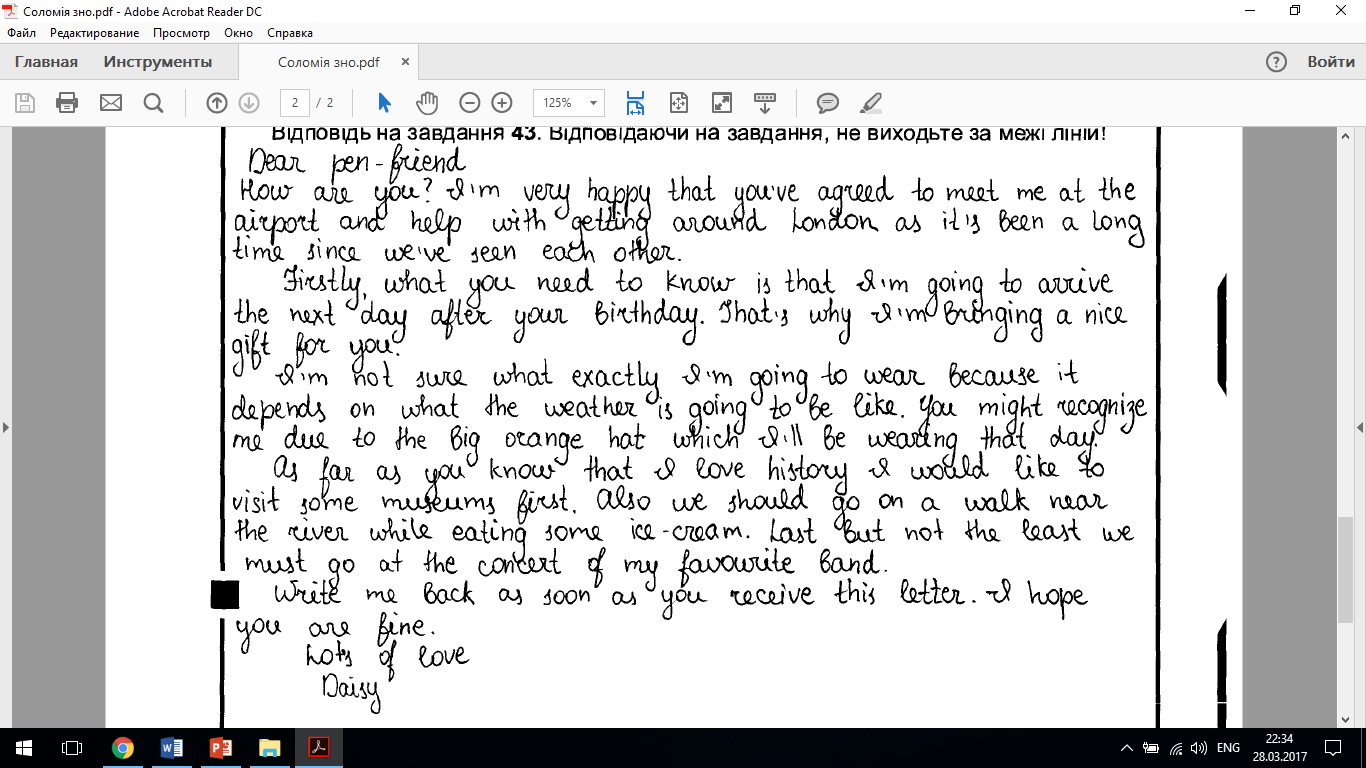 Соломія зно.pdf - Adobe Acrobat Reader DC
Файл Редактирование Просмотр Окно Справка
Главная Инструменты Соломія зно.pdf × Войти
2 / 2 125%
Відповідь на завдання 43. Відповідаючи на завдання, не виходьте за межі ліній!
Dear pen-friend
How are you? I'm very happy that you've agreed to meet me at the
airport and help with getting around London as it's been a long
time since we've seen each other.
Firstly, what you need to know is that I'm going to arrive
the next day after your birthday. That's why I'm bringing a nice
gift for you.
I'm not sure what exactly I'm going to wear because it
depends on what the weather is going to be like. You might recognize
me due to the big orange hat which I'll be wearing that day.
As far as you know that I love history I would like to
visit some museums first. Also we should go on a walk near
the river while eating some ice-cream. Last but not the least we
must go at the concert of my favourite band.
Write me back as soon as you receive this letter. I hope
you are fine.
Lots of love
Daisy
ENG 22:34
28.03.2017